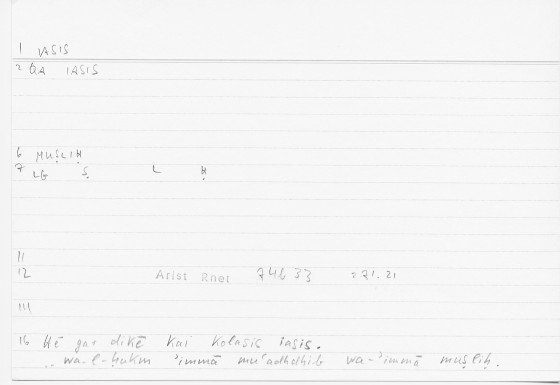 1 IASIS
2 QA IASIS
6 MUṢLIḤ
7 LG Ṣ L Ḥ
11
12 Arist Rhet 74b33 = 71.21
14
16 Hē gar dikē kai kolasis iasis.
.. wa-l-ḥukm ʾimmā muʿadhdhib wa-ʾimmā muṣliḥ.